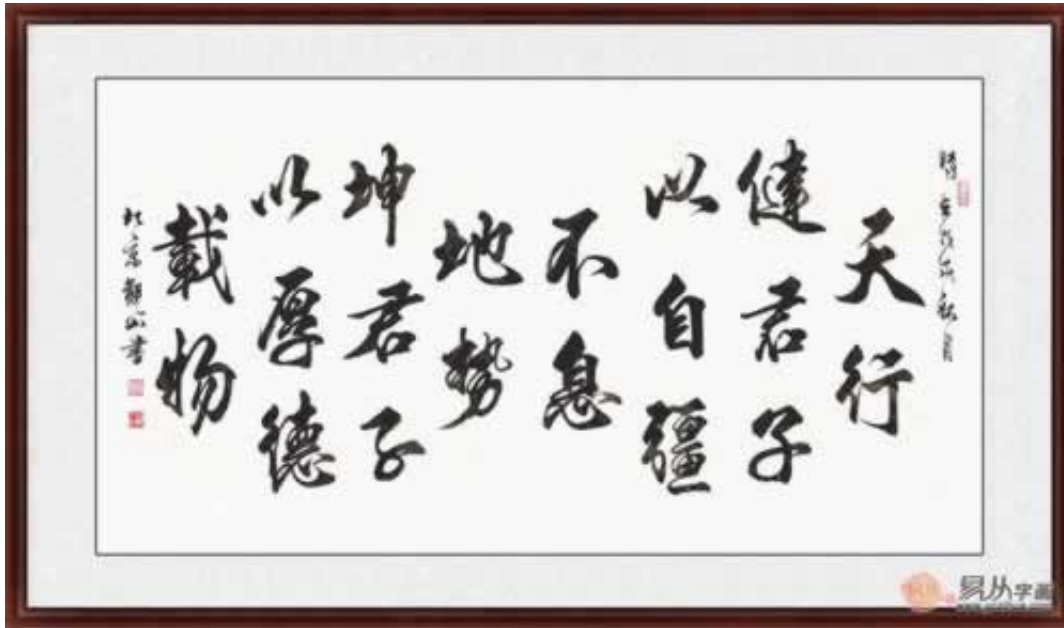 天行
健君子
以自彊
不息
地势
坤君子
以厚德
載物
書
易从字画